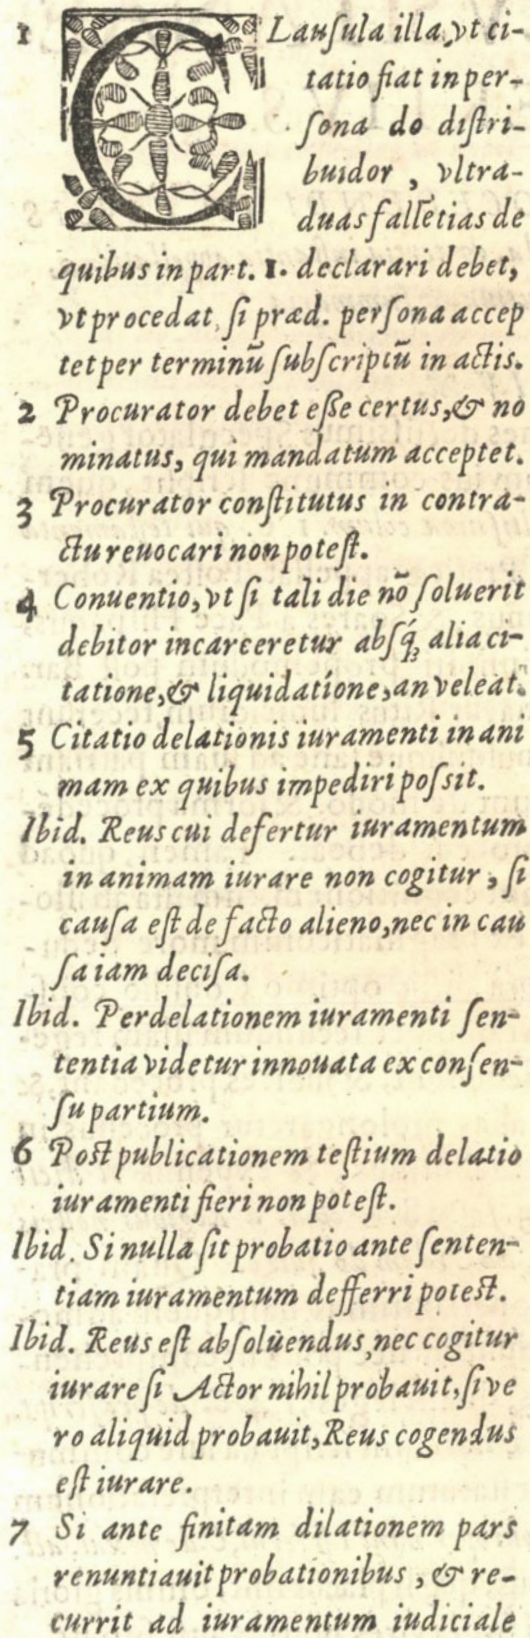 1 CLauſula illa, vt ci-
tatio fiat in per-
ſona do diſtri-
buidor, vltra-
duas fallẽtias de
quibus in part. 1. declarari debet,
vt procedat, ſi præd. perſona accep
tet per terminũ ſubſcriptũ in actis.
2 Procurator debet eſſe certus, & no
minatus, qui mandatum acceptet.
3 Procurator conſtitutus in contra-
ctu reuocari non poteſt.
4 Conuentio, vt ſi tali die nõ ſoluerit
debitor incarceretur abſq́; alia ci-
tatione, & liquidatione, an veleat.
5 Citatio delationis iuramenti in ani
mam ex quibus impediri poſsit.
Ibid. Reus cui defertur iuramentum
in animam iurare non cogitur, ſi
cauſa eſt de facto alieno, nec in cau
ſa iam deciſa.
Ibid. Per delationem iuramenti ſen-
tentia videtur innouata ex conſen-
ſu partium.
6 Poſt publicationem teſtium delatio
iuramenti fieri non poteſt.
Ibid. Si nulla ſit probatio ante ſenten-
tiam iuramentum defferri poteſt.
Ibid. Reus eſt abſoluendus, nec cogitur
iurare ſi Actor nihil probauit, ſi ve
ro aliquid probauit, Reus cogendus
eſt iurare.
7 Si ante finitam dilationem pars
renuntiauit probationibus, & re-
currit ad iuramentum iudiciale